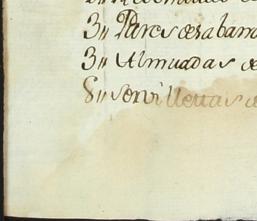 3,, Pares de sabana
3,, Almuadas de
8,, servilletas d